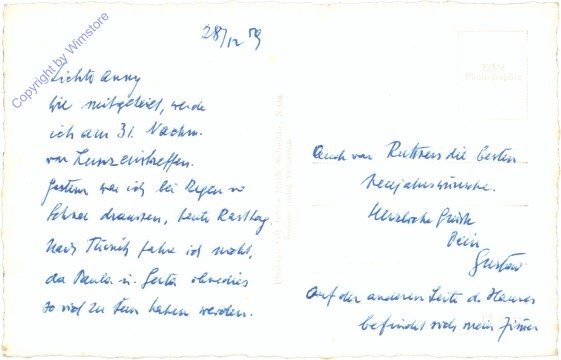 28/12 59
Copyright by Wimstore
Liebste Anny
Wie mitgeteilt, werde
ich am 31. Nachm.
von Lunz eintreffen.
Gestern war ich bei Regen u
Schnee draussen, heute Rasttag.
Nach Türnitz fahre ich nicht,
da Paula u. Gerta ohnedies
so viel zu tun haben werden.
Echte
Photographie
Auch von Ruttners die besten
Neujahrswünsche.
Herzliche Grüße
Dein
Gustav
Auf der anderen Seite d. Hauses
befindet sich mein Zimmer